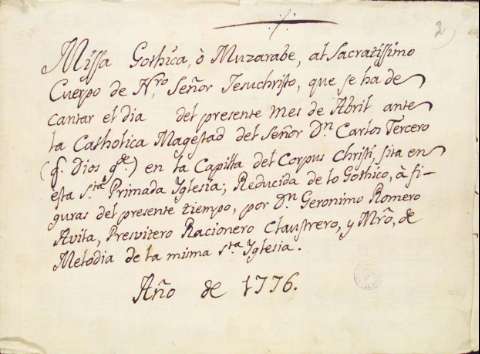 2
Missa Gothica, ò Muzarabe, al Sacratissimo
Cuerpo de Nro Señor Jesuchristo, que se ha de
cantar el dia del presente Mes de Abril ante
la Catholica Magestad del Señor Dn. Carlos Tercero
(q. Dios gde.) en la Capilla del Corpus Christi, sita en
esta Sta. Primada Iglesia; Reducida de lo Gothico, à fi-
guras del presente tiempo, por Dn. Geronimo Romero
Avila, Presvitero Racionero Claustrero, y Mro. de
Melodia de la mima Sta. Iglesia.
Año de 1776.